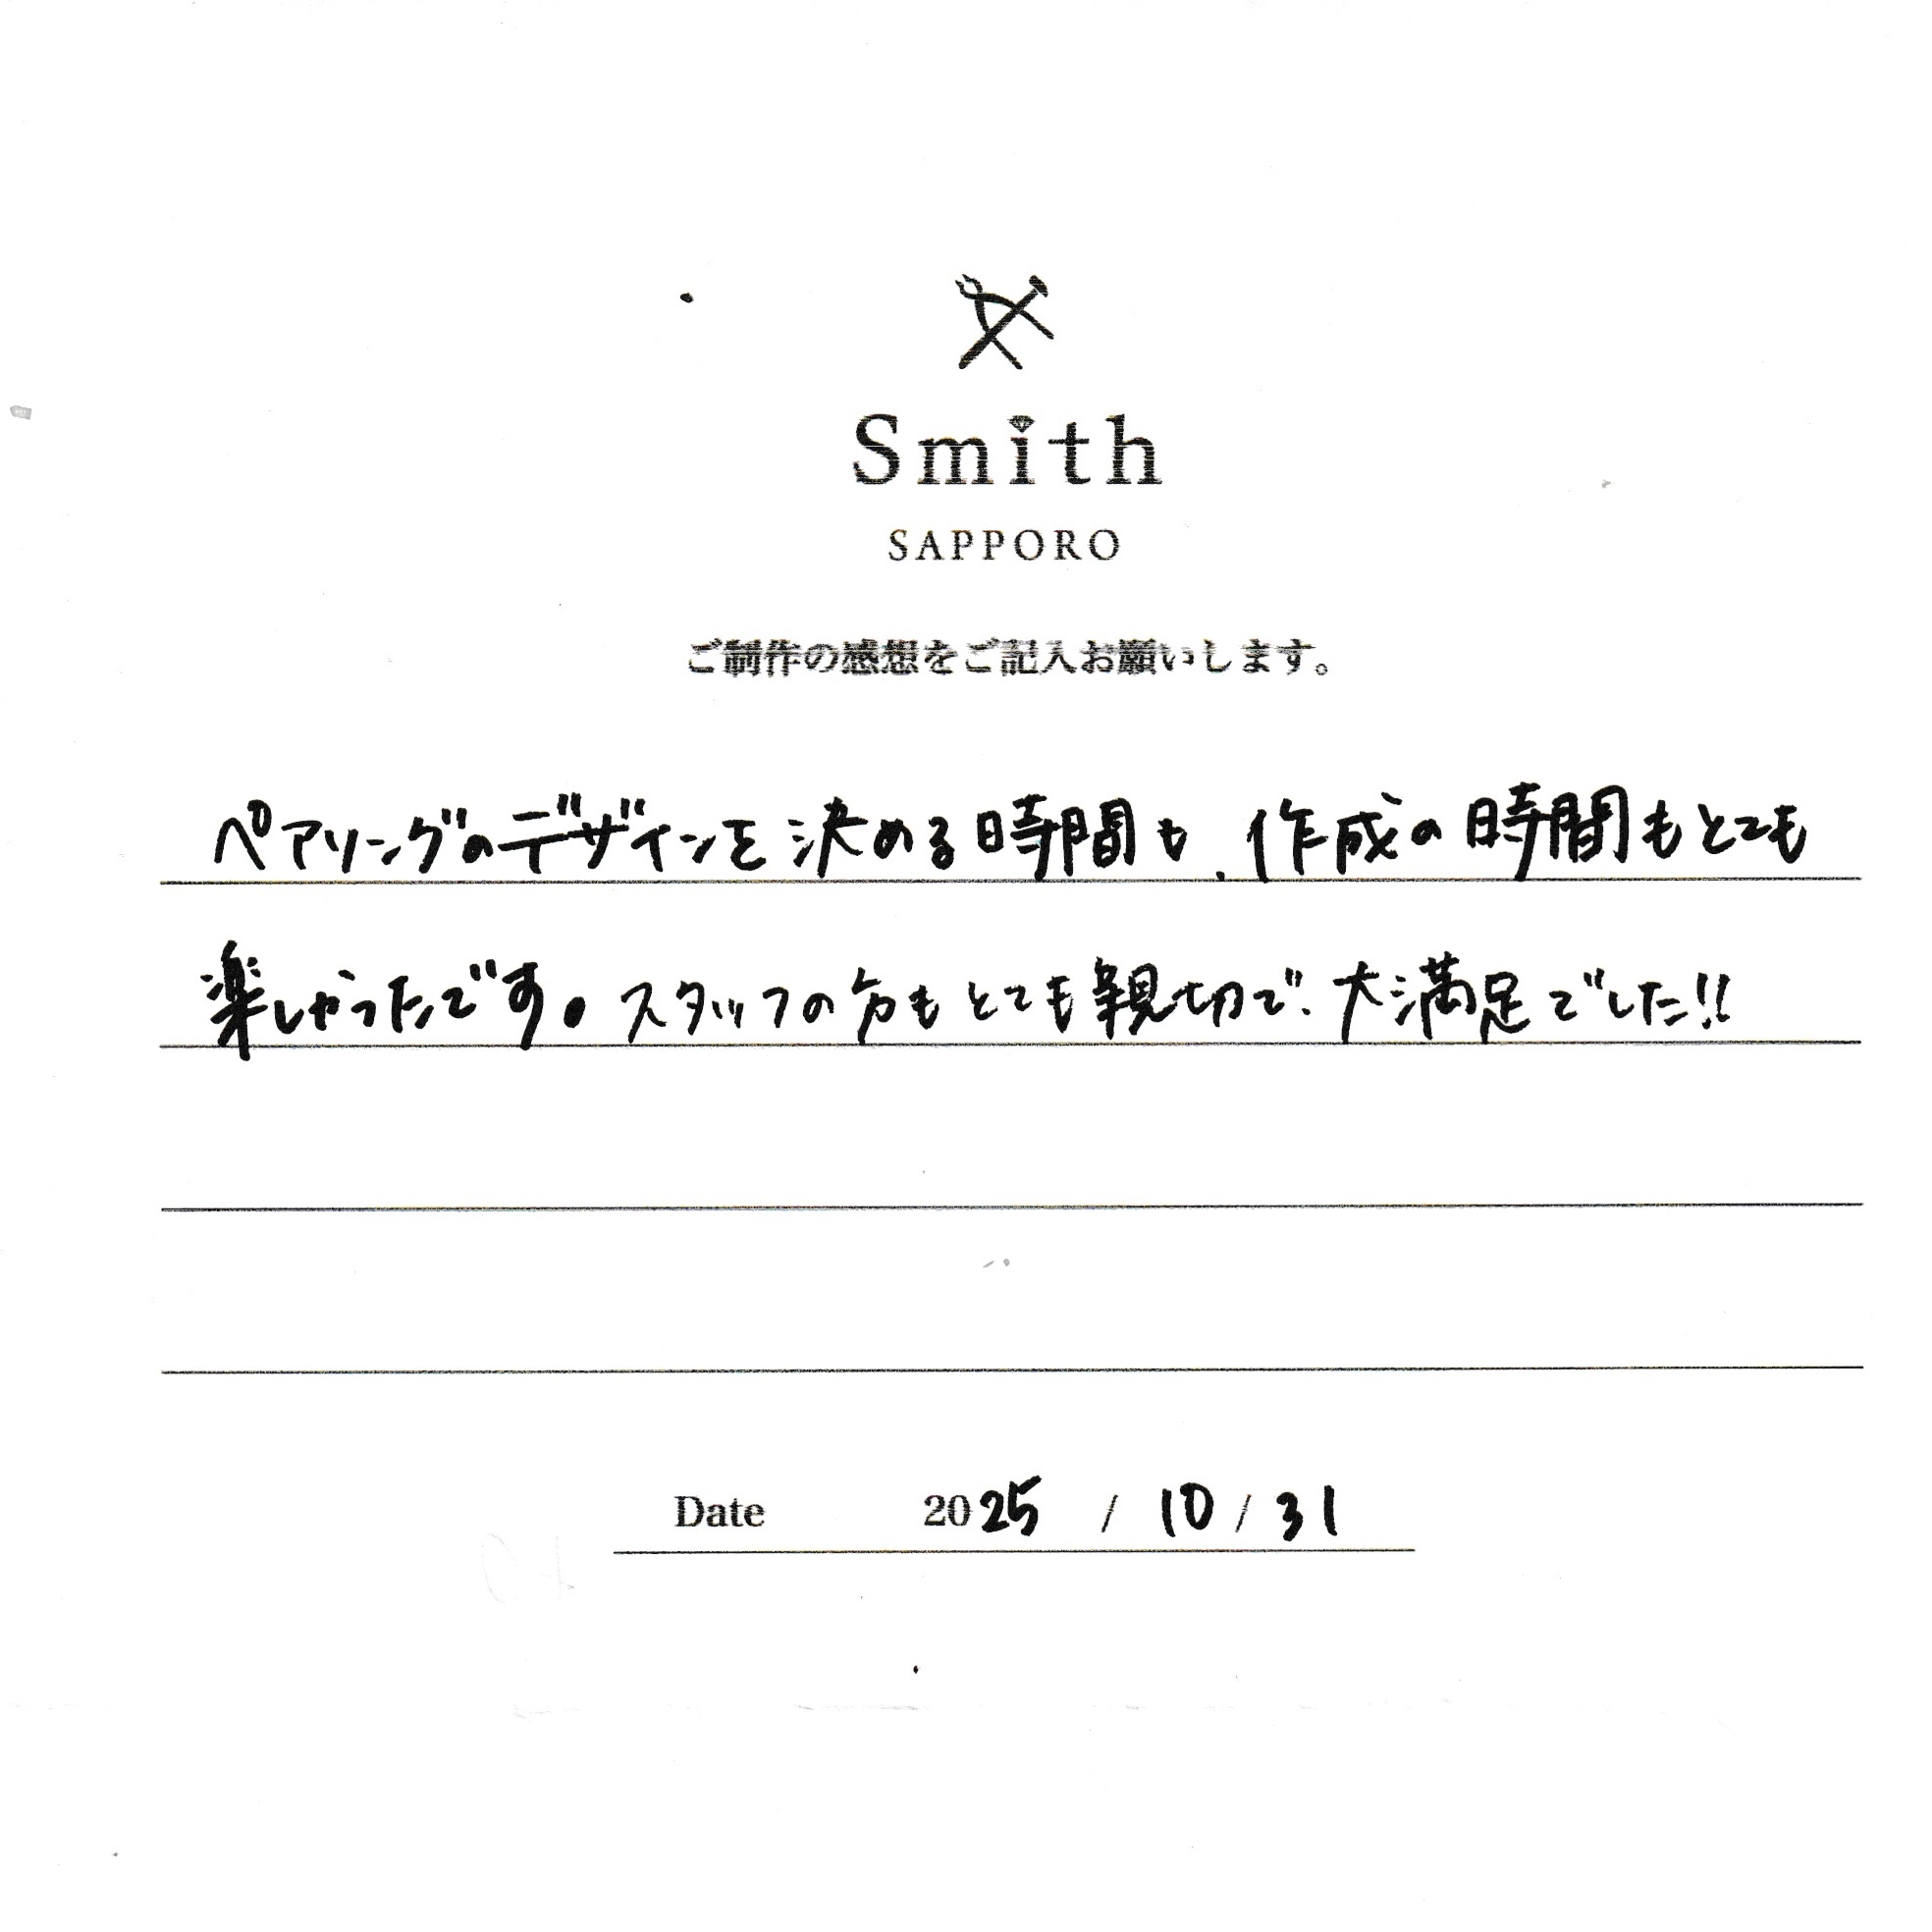 Smith
SAPPORO
ご制作の感想をご記入お願いします。
ペアリングのデザインを決める時間も、作成の時間もとても
楽しかったです。スタッフの方もとても親切で、大満足でした!!
Date 2025 / 10 / 31